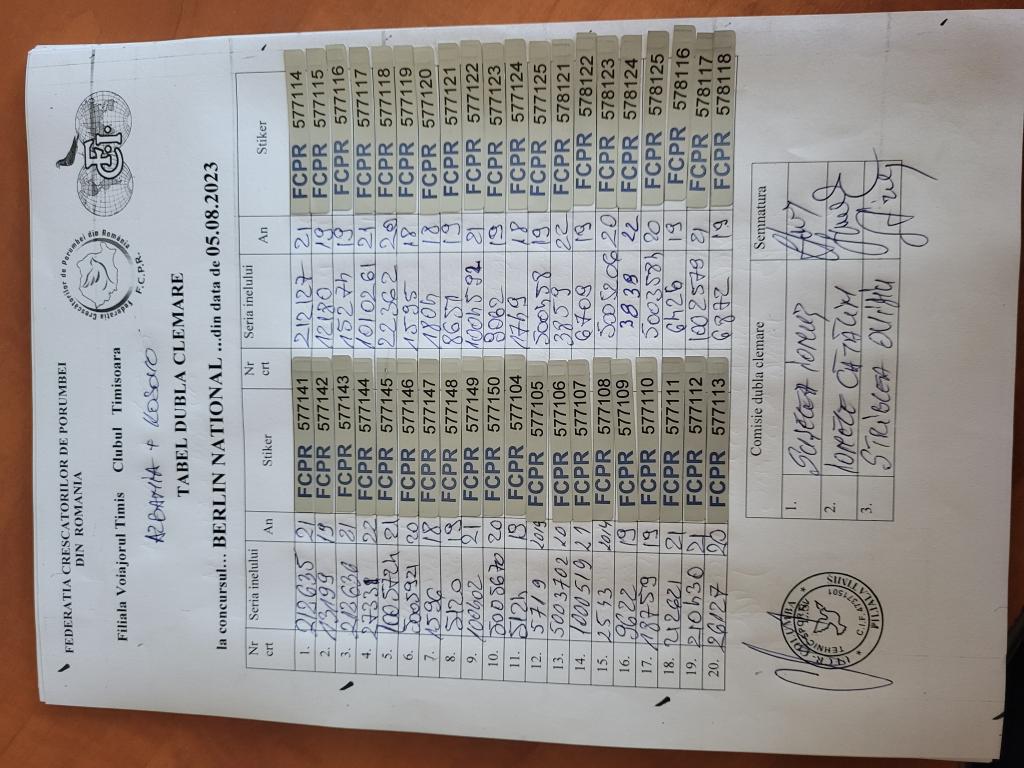 FEDERATIA CRESCATORILOR DE PORUMBEI
DIN ROMANIA
Federatia Crescatorilor de Porumbei din România
F.C.P.R.
Filiala Voiajorul Timis Clubul Timisoara
ALBANIA + KOSOVO
TABEL DUBLA CLEMARE
la concursul... BERLIN NATIONAL ...din data de 05.08.2023
Nr crt Seria inelului An Stiker Nr crt Seria inelului An Stiker
1. 212635 21 FCPR 577141 212127 21 FCPR 577114
2. 19 FCPR 577142 12180 19 FCPR 577115
3. 212630 21 FCPR 577143 15274 19 FCPR 577116
4. 22 FCPR 577144 1010261 21 FCPR 577117
5. 1005724 21 FCPR 577145 22362 20 FCPR 577118
6. 500321 20 FCPR 577146 1595 18 FCPR 577119
7. 1596 18 FCPR 577147 1804 18 FCPR 577120
8. 5120 19 FCPR 577148 8651 19 FCPR 577121
9. 21 FCPR 577149 1004592 21 FCPR 577122
10. 5005670 20 FCPR 577150 9062 19 FCPR 577123
11. 5124 19 FCPR 577104 1749 18 FCPR 577124
12. 5719 2019 FCPR 577105 500458 19 FCPR 577125
13. 5003702 19 FCPR 577106 3859 22 FCPR 578121
14. 1000519 21 FCPR 577107 6709 19 FCPR 578122
15. 2543 2014 FCPR 577108 5005206 20 FCPR 578123
16. 9622 19 FCPR 577109 3939 22 FCPR 578124
17. 18759 19 FCPR 577110 5003584 20 FCPR 578125
18. 212621 21 FCPR 577111 6426 19 FCPR 578116
19. 210430 21 FCPR 577112 1002579 21 FCPR 578117
20. 26127 20 FCPR 577113 6872 19 FCPR 578118
Comisie dubla clemare Semnatura
1.
2. CĂTĂLIN
3. STRIBLEA OVIDIU
COLUMBA
TEHNIC
FILIALA JIMBOLIA
C.I.F. 42371501